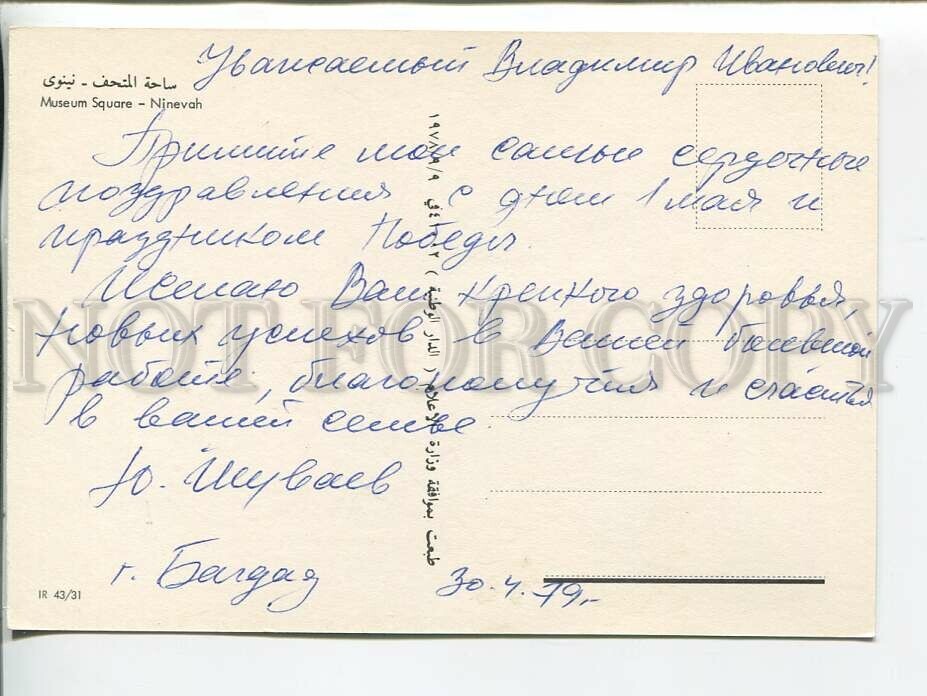 Уважаемый Владимир Иванович!
ساحة المتحف - نينوى
Museum Square - Ninevah
Примите мои самые сердечные
поздравления с днем 1 мая и
праздником Победы.
Желаю Вам крепкого здоровья,
новых успехов в Вашей большой
работе, благополучия и счастья
в вашей семье.
Ю. Шуваев
г. Багдад 30.4.79.-
IR 43/31
طبعت بموافقة وزارة الاعلام ( الدار الوطنية ) في ١٩٧٨/٩/٩
NOT FOR COPY